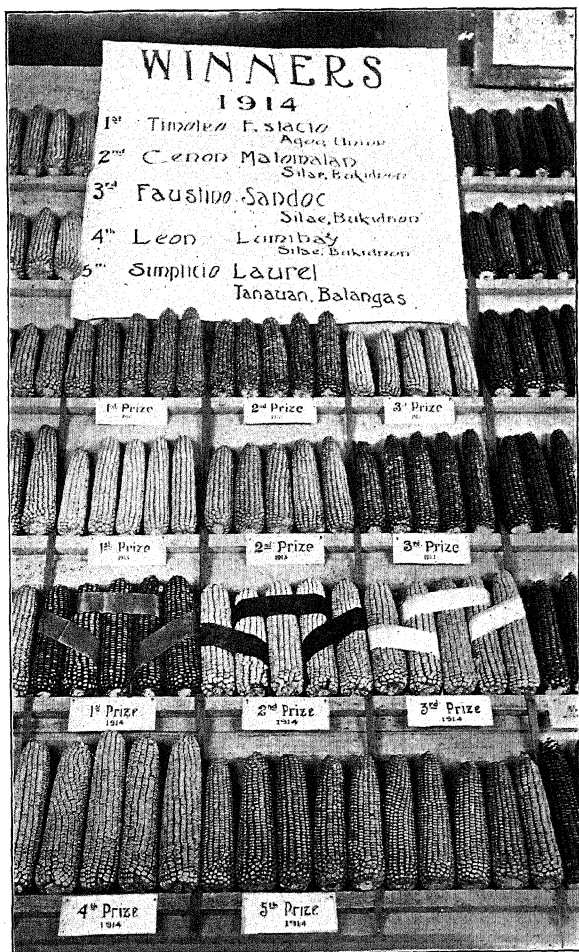 WINNERS
1914
1st Timoteo Estacio
Agoo, Union
2nd Cenon Matomalan
Silae, Bukidnon
3rd Faustino Sandoc
Silae, Bukidnon
4th Leon Lumibay
Silae, Bukidnon
5th Simplicio Laurel
Tanauan, Batangas
1st Prize
2nd Prize
3rd Prize
1st Prize
1913
2nd Prize
1913
3rd Prize
1913
1st Prize
1914
2nd Prize
1914
3rd Prize
1914
4th Prize
1914
5th Prize
1914